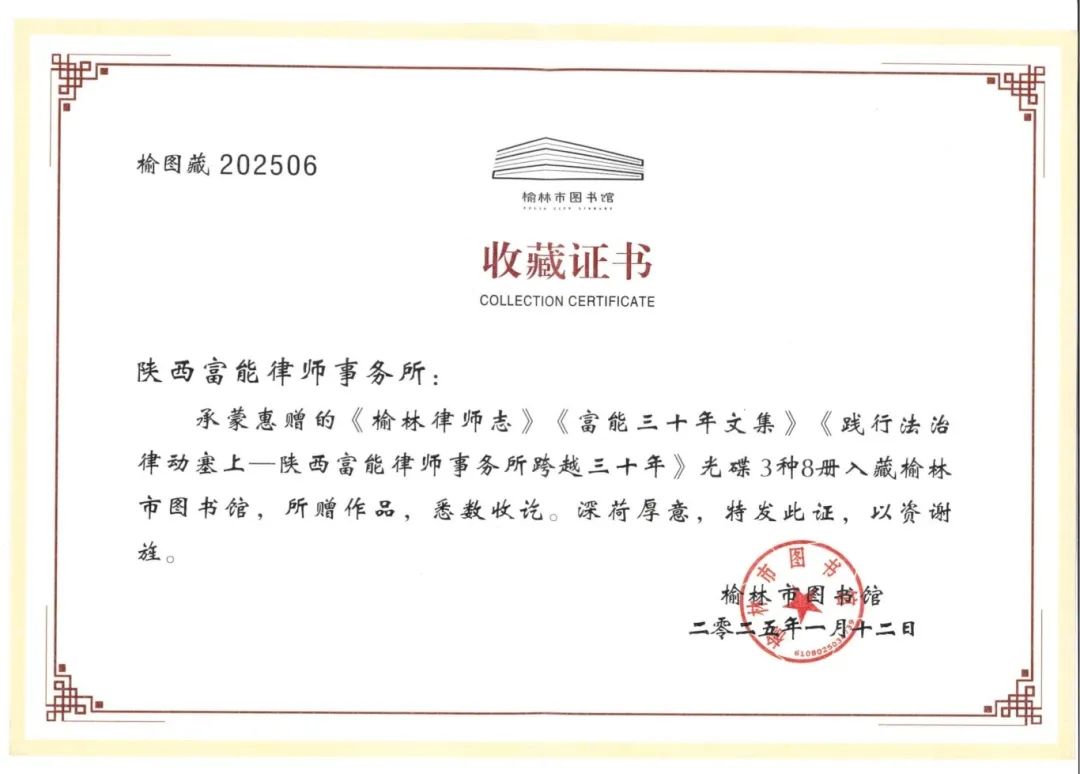 榆图藏 202506
榆林市图书馆
YULIN CITY LIBRARY
收藏证书
COLLECTION CERTIFICATE
陕西富能律师事务所：
承蒙惠赠的《榆林律师志》《富能三十年文集》《践行法治
律动塞上—陕西富能律师事务所跨越三十年》光碟3种8册入藏榆林
市图书馆，所赠作品，悉数收讫。深荷厚意，特发此证，以资谢
旌。
榆林市图书馆
二零二五年一月十二日
榆林市图书馆